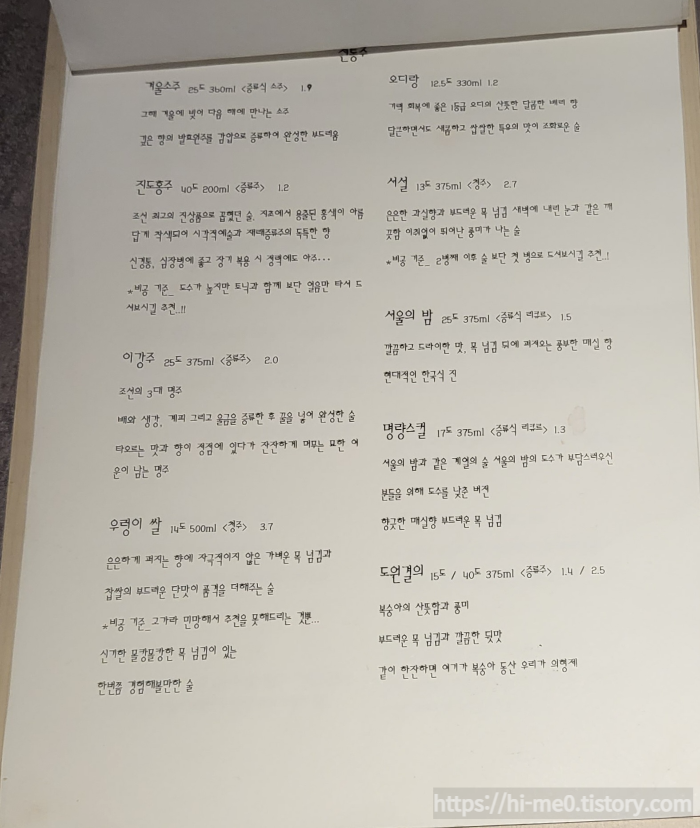 전통주
겨울소주 25도 360ml <증류식 소주> 1.9
그해 겨울에 빚어 다음 해에 만나는 소주
깊은 향의 발효원주를 감압으로 증류하여 완성한 부드러움
진도홍주 40도 200ml <증류주> 1.2
조선 최고의 진상품으로 꼽혔던 술. 지초에서 용출된 홍색이 아름
답게 착색되어 시각적예술과 재래증류주의 독특한 향
신경통, 심장병에 좋고 장기 복용 시 정력에도 아주...
*비공 기준_ 도수가 높지만 토닉과 함께 보단 얼음만 타서 드
셔보시길 추천..!!
이강주 25도 375ml <증류주> 2.0
조선의 3대 명주
배와 생강, 계피 그리고 울금을 증류한 후 꿀을 넣어 완성한 술
타오르는 맛과 향이 정점에 있다가 잔잔하게 머무는 묘한 여
운이 남는 명주
우렁이 쌀 14도 500ml <청주> 3.7
은은하게 퍼지는 향에 자극적이지 않은 가벼운 목 넘김과
찹쌀의 부드러운 단맛이 품격을 더해주는 술
*비공 기준_ 고가라 민망해서 추천을 못해드리는 것뿐...
신기한 몰캉몰캉한 목 넘김이 있는
한번쯤 경험해볼만한 술
오디랑 12.5도 330ml 1.2
기력 회복에 좋은 1등급 오디의 산뜻한 달콤한 베리 향
달큰하면서도 새콤하고 쌉쌀한 특유의 맛이 조화로운 술
서설 13도 375ml <청주> 2.7
은은한 과실향과 부드러운 목 넘김 새벽에 내린 눈과 같은 깨
끗함 이취없이 튀어난 풍미가 나는 술
*비공 기준_ 2병째 이후 술 보단 첫 병으로 드셔보시길 추천..!
서울의 밤 25도 375ml <증류식 리큐르> 1.5
깔끔하고 드라이한 맛, 목 넘김 뒤에 퍼져오는 풍부한 매실 향
현대적인 한국식 진
명량스컬 17도 375ml <증류식 리큐르> 1.3
서울의 밤과 같은 계열의 술 서울의 밤의 도수가 부담스러우신
분들을 위해 도수를 낮춘 버전
향긋한 매실향 부드러운 목 넘김
도원결의 15도 / 40도 375ml <증류주> 1.4 / 2.5
복숭아의 산뜻함과 풍미
부드러운 목 넘김과 깔끔한 뒷맛
같이 한잔하면 여기가 복숭아 동산 우리가 의형제
https://hi-me0.tistory.com